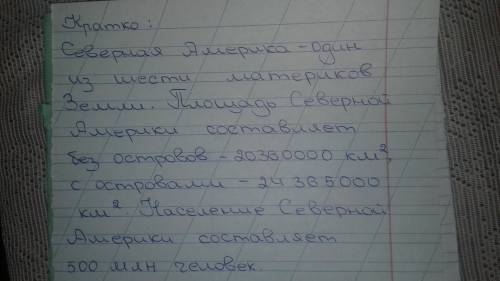 Кратко:
Северная Америка - один
из шести материков
Земли. Площадь Северной
Америки составляет
без островов - 20360000 км²,
с островами - 24 365000
км². Население Северной
Америки составляет
500 млн человек.